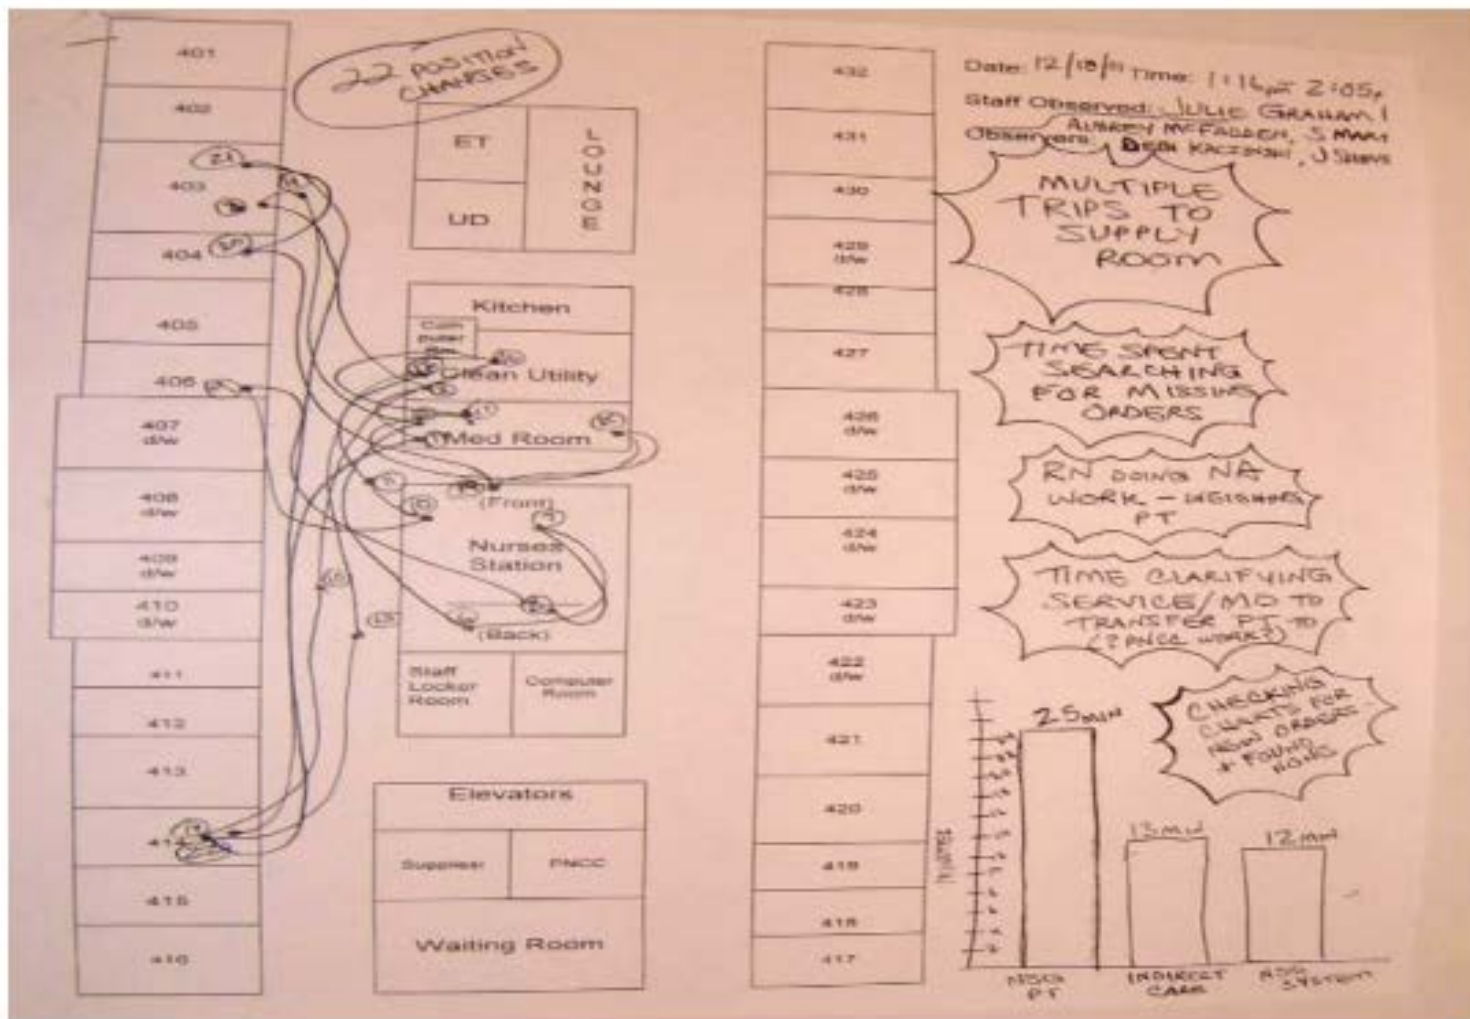 22 POSITION
CHANGES
401
402
403
404
405
406
407
d/w
408
d/w
409
d/w
410
d/w
411
412
413
414
415
416
ET
UD
LOUNGE
Kitchen
Clean Utility
Med Room
(Front)
Nurses
Station
(Back)
Staff
Locker
Room
Computer
Room
Elevators
Supplies/
PNCC
Waiting Room
432
431
430
429
d/w
428
427
426
d/w
425
d/w
424
d/w
423
d/w
422
d/w
421
420
419
418
417
Date: 12/18/ Time: 1:16 2:05
Staff Observed: JULIE GRAHAM
AUBREY McFADDEN, S MARY
Observers: DEBI KACZINSKI, J
MULTIPLE
TRIPS TO
SUPPLY
ROOM
TIME SPENT
SEARCHING
FOR MISSING
ORDERS
RN DOING NA
WORK - WEIGHING
PT
TIME CLARIFYING
SERVICE/MD TO
TRANSFER PT TO
(? PNCC WORK?)
CHECKING
CHARTS FOR
NEW ORDERS
+ FOUND
NONE
25 MIN
13 MIN
12 MIN
NSG
PT
INDIRECT
CARE
NSG
SYSTEM